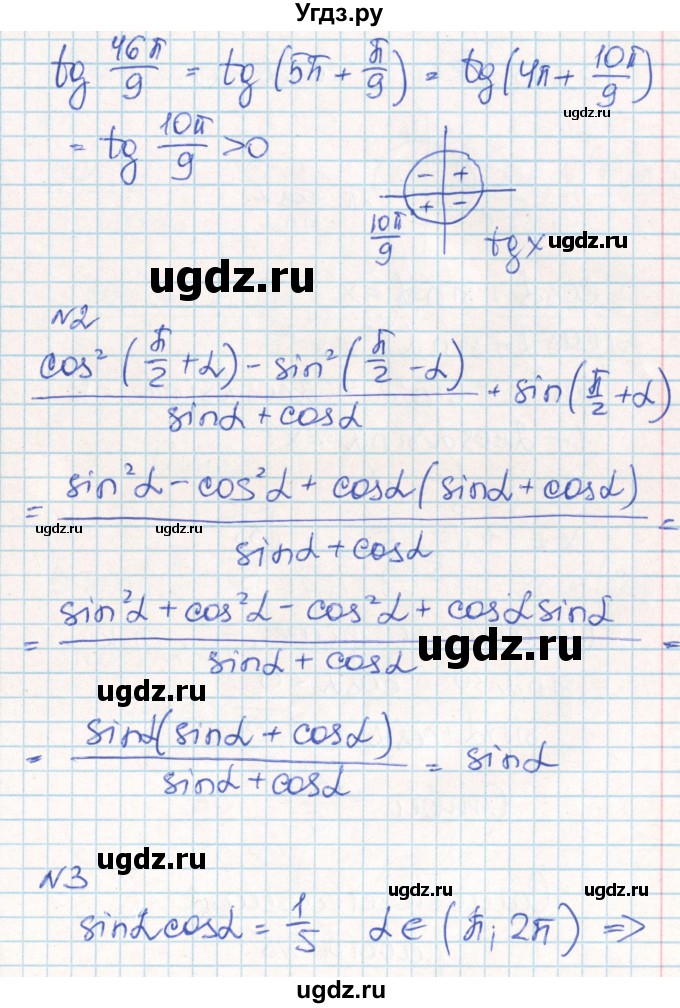 Угдз.ру
tg 46π/9 = tg (5π + π/9) = tg(4π + 10π/9)
ugdz.ru
= tg 10π/9 > 0
- +
+ -
10π/9
tg x ugdz.ru
ugdz.ru ugdz.ru
N2
(cos² (π/2 + α) - sin² (π/2 - α)) / (sinα + cosα) + sin(π/2 + α)
= (sin²α - cos²α + cosα (sinα + cosα)) / (sinα + cosα) =
ugdz.ru ugdz.ru ugdz.ru
= (sin²α + cos²α - cos²α + cosα sinα) / (sinα + cosα) =
ugdz.ru
ugdz.ru
= (sinα(sinα + cosα)) / (sinα + cosα) = sinα
ugdz.ru
N3
ugdz.ru ugdz.ru
sinα cosα = 1/5 α ∈ (π; 2π) =>